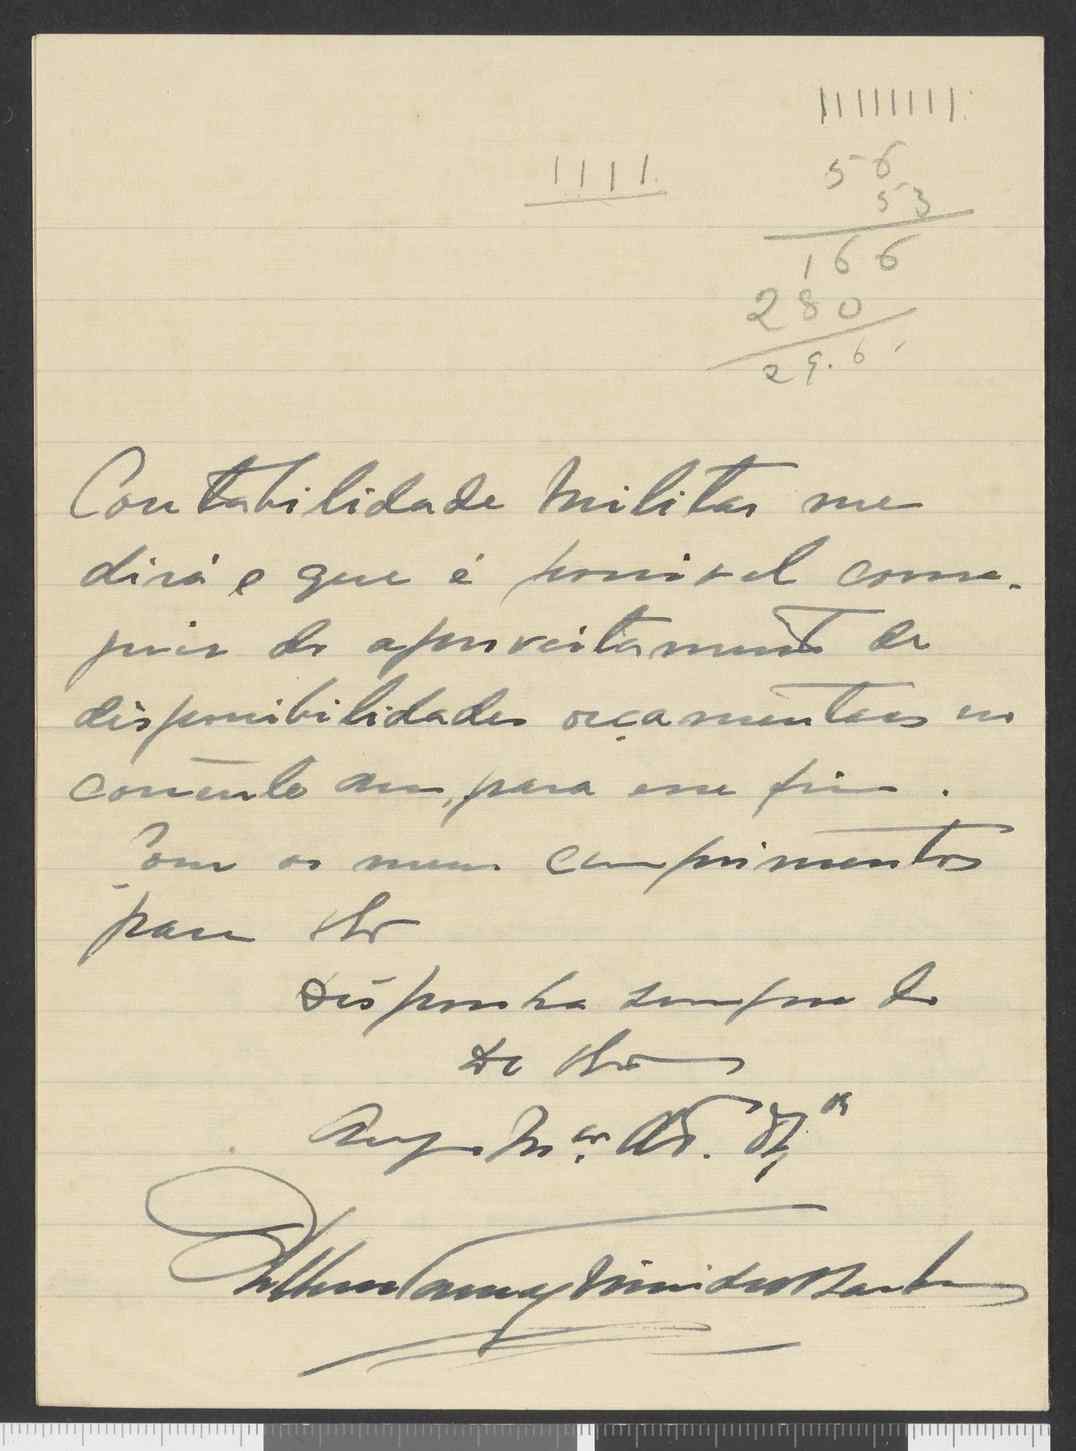 56
53
166
280
29.6
Contabilidade Militar me
dirá o que é possivel conse-
guir do aproveitamento de
disponibilidades orçamentaes no
corrente ano, para esse fim.
Com os meus cumprimentos
para
Disponha sempre do
De